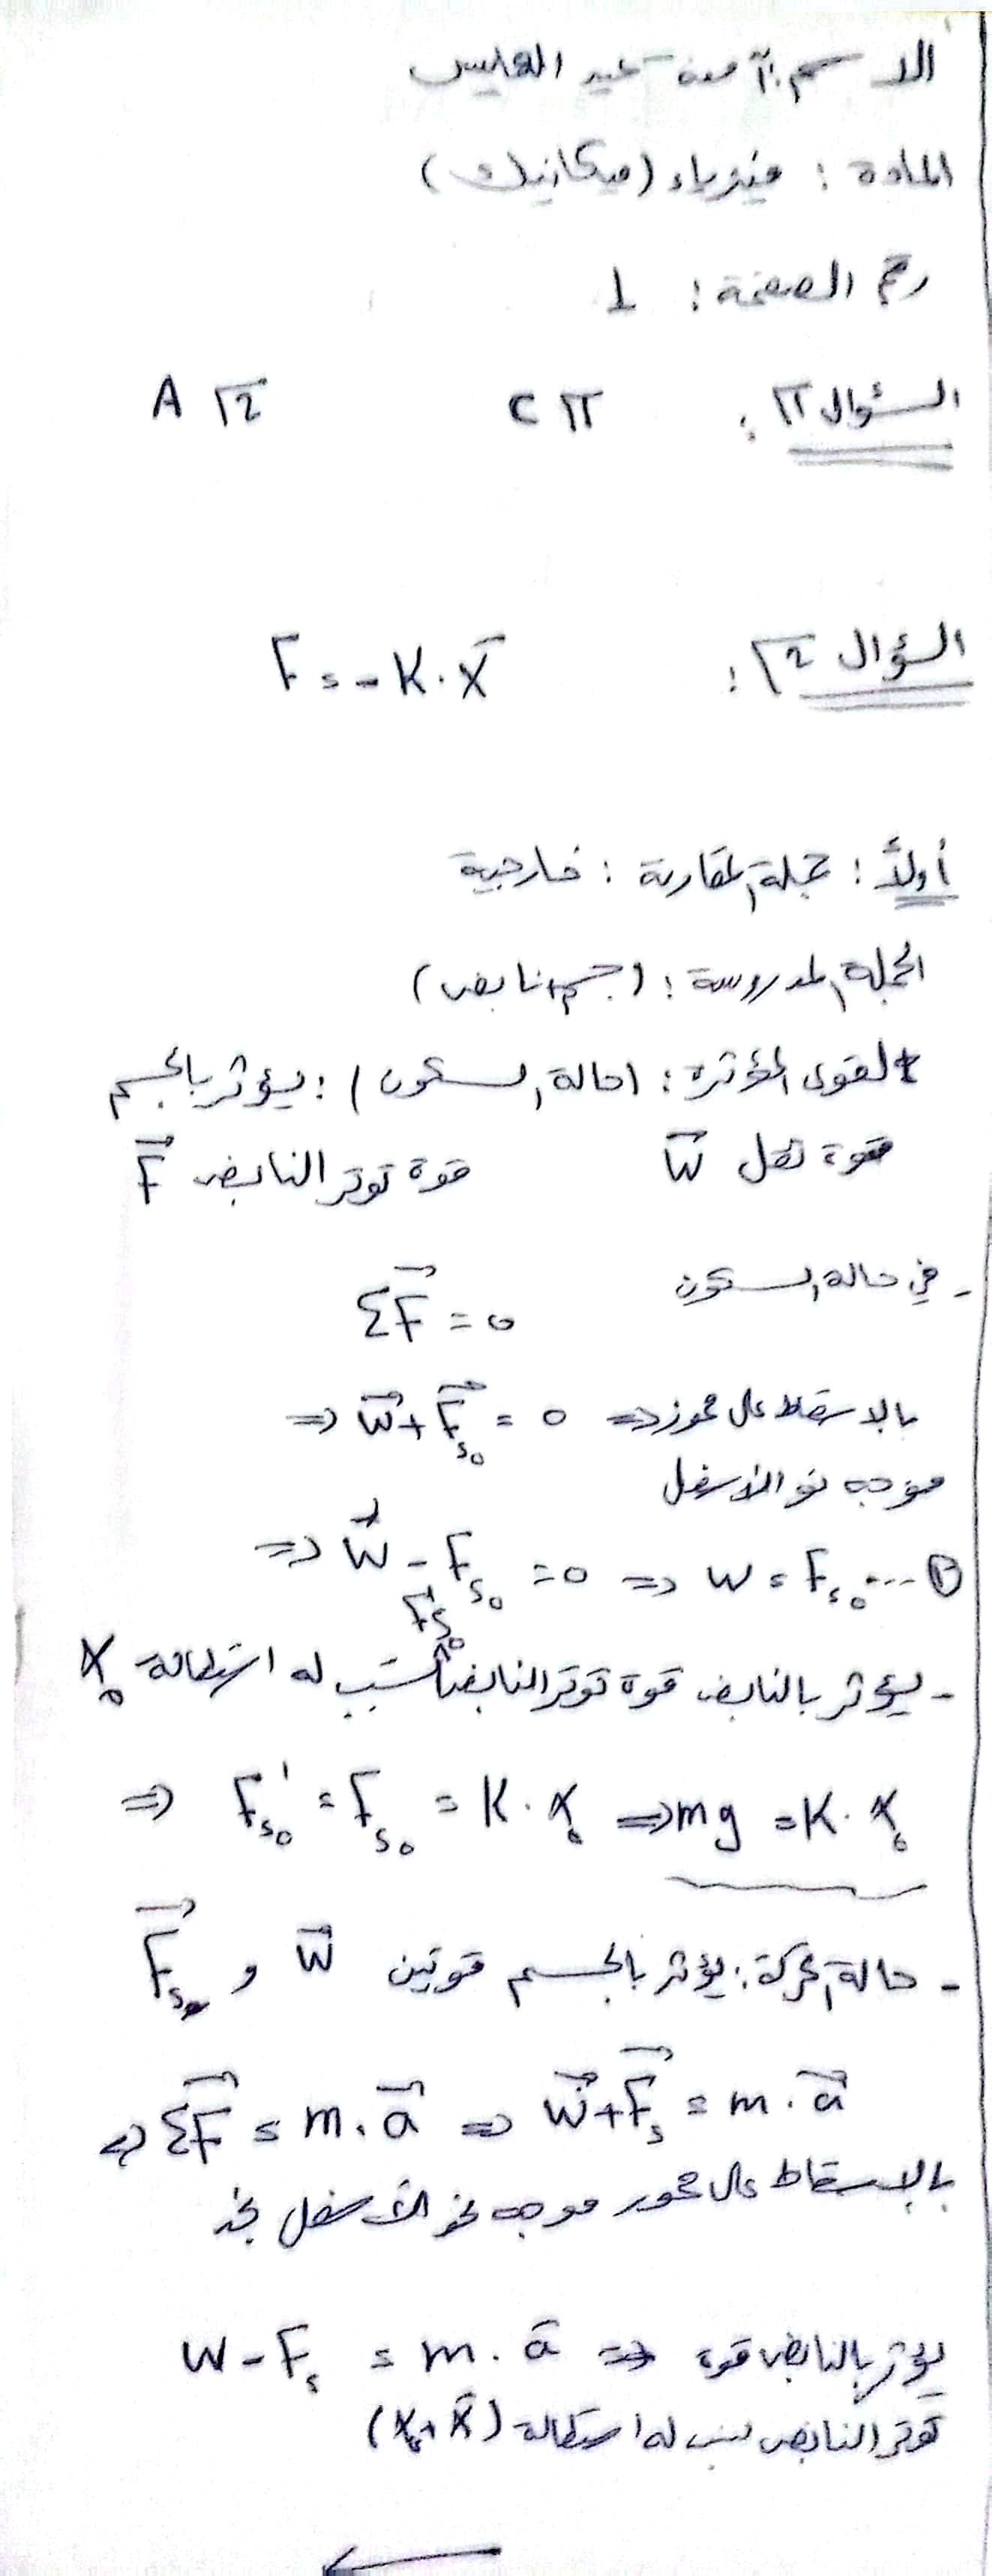 الاسم: آمنة عبد
المادة: فيزياء (ميكانيك)
رقم الصفحة: 1
السؤال 1: C 1 A 2
السؤال 2: F = -K.x̄
أولاً: جملة المقارنة: خارجية
الجملة المدروسة: (جسم نابض)
القوى المؤثرة: (حالة السكون): يؤثر بالجسم
قوة ثقل W⃗ قوة توتر النابض F⃗
- في حالة السكون ΣF⃗ = 0
بالإسقاط على محور ⇒ W⃗ + F⃗s₀ = 0 ⇒
موجه نحو الأسفل
⇒ W⃗ - Fs₀ = 0 ⇒ W = Fs₀ ... ①
- يؤثر بالنابض قوة توتر النابض F's₀ تسبب له استطالة x₀
⇒ F's₀ = Fs₀ = K.x₀ ⇒ mg = K.x₀
- حالة الحركة: يؤثر بالجسم قوتين W⃗ و F⃗s
⇒ ΣF⃗ = m.a⃗ ⇒ W⃗ + F⃗s = m.a⃗
بالإسقاط على محور موجه نحو الأسفل نجد
W - Fs = m.ā ⇒ يؤثر بالنابض قوة
توتر النابض تسبب له استطالة (x₀ + x̄)